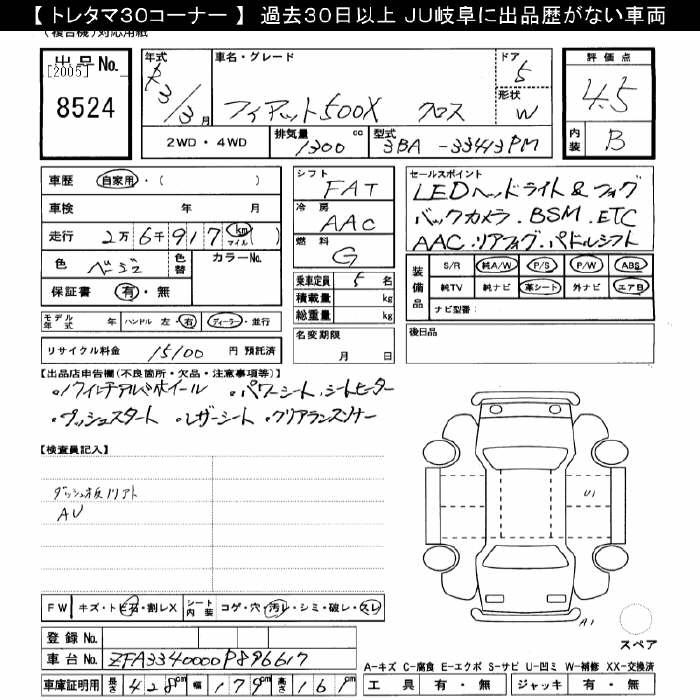 【 トレタマ30コーナー 】 過去30日以上 JU岐阜に出品歴がない車両
(複合機)対応用紙
出品No.
[2005]
8524
年式
R3/3月
車名・グレード
フィアット500X クロス
ドア
5
形状
W
評価点
4.5
内装
B
2WD・4WD
排気量
1300 cc
型式
3BA-33413PM
車歴 自家用・( )
車検 年 月
走行 2万6千917 km マイル ( )
色 ベージュ
色替
カラーNo.
保証書 有・無
モデル年式 年
ハンドル 左・右
ディーラー・並行
リサイクル料金 15100 円 預託済
シフト
FAT
冷房
AAC
燃料
G
乗車定員 5 名
積載量 kg
総重量 kg
名変期限
月 日
セールスポイント
LEDヘッドライト&フォグ
バックカメラ.BSM.ETC
AAC.リアフォグ.パドルシフト
装備品
S/R 純A/W P/S P/W ABS
純TV 純ナビ 革シート 外ナビ エアB
ナビ型番:
後日品
【出品店申告欄(不良箇所・欠品・注意事項等)】
・17インチアルミホイール ・パワーシート.シートヒーター
・プッシュスタート ・レザーシート ・クリアランスソナー
【検査員記入】
ダッシュ板リフト
AU
U1
A1
スペア
FW キズ・トビ石・割レX
シート内装 コゲ・穴・汚レ・シミ・破レ・スレ
登録No.
車台No. ZFA3340000P896617
車庫証明用 長さ 428cm 幅 179cm 高さ 161cm
A-キズ C-腐食 E-エクボ S-サビ U-凹ミ W-補修 XX-交換済
工具 有・無 ジャッキ 有・無